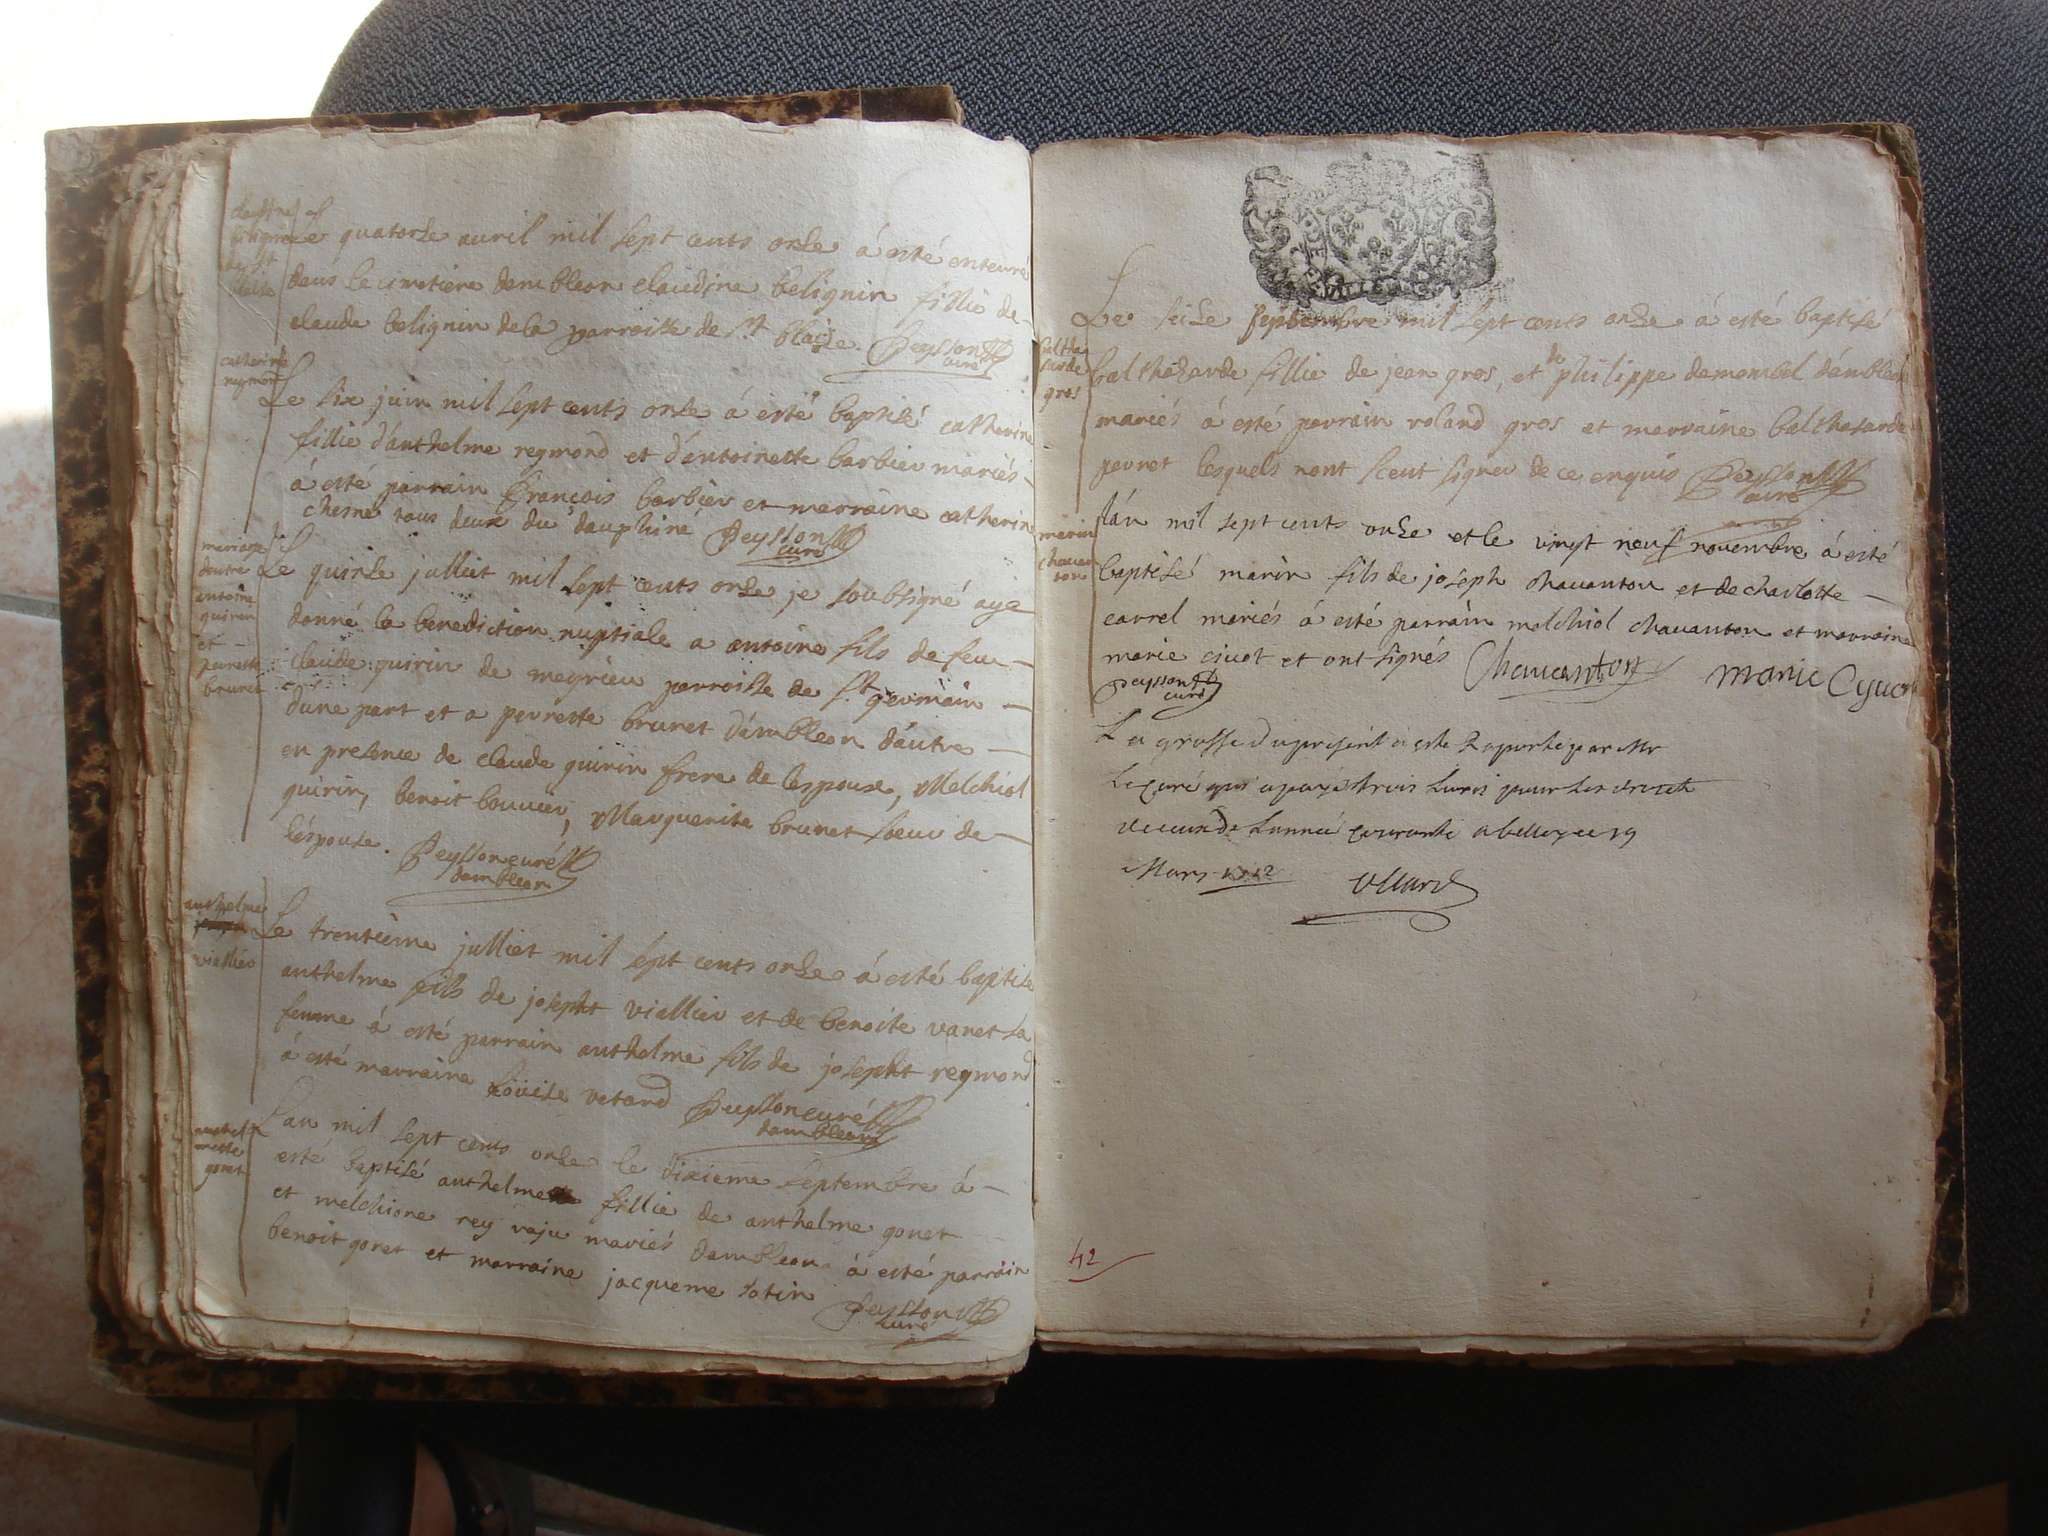 Le quatorze avril mil sept cents onze á esté enterré
dans le cimetiere dambleon claudine belignin fillie de
claude belignin de la parroisse de st blaise. Peysson
curé
catherine
reymond
Le six juin mil sept cents onze á esté baptisé catherine
fillie d'anthelme reymond et d'antoinette barbier mariés
á esté parrain françois barbier et marraine catherine
chesne tous deux du dauphiné Peysson
curé
mariage
dentre
antoine
quirin
et
perrette
brunet
Le quinze julliet mil sept cents onze je soubsigné aye
donné la benediction nuptiale a antoine fils de feu
claude quirin de meyrieu parroisse de st germain
dune part et a perrette brunet d'ambleon d'autre
en presence de claude quirin frere de lespoux, Melchiol
quirin, benoit bouvier, Marguerite brunet soeur de
léspouse. Peysson curé
dambleon
anthelme
viallier
Le trentiéme julliet mil sept cents onze á esté baptisé
anthelme fils de josepht viallier et de benoite varet sa
femme á esté parrain anthelme fils de josepht reymond
á esté marraine Louise vetard Peysson curé
dambleon
anthel
mette
goret
L'an mil sept cents onze le dixieme septembre á
esté baptisé anthelme fillie de anthelme goret
et melchione rey vaju mariés dambleon á esté parrain
benoit goret et marraine jacqueme sotin
Peysson
curé
Le seize septembre mil sept cents onze á esté baptisé
baltha
zarde
gros
balthazarde fillie de jean gros, et de philippe demembel d'ambleon
mariés á esté parrain roland gros et marraine balthasarde
perret lesquels nont sceut signer de ce enquis Peysson
curé
marin
chavan
ton
l'an mil sept cents onze et le vingt neuf novembre á esté
baptisé marin fils de joseph chavanton et de charlotte
carrel mariés á esté parrain melchiol chavanton et marraine
marie civot et ont signés Chavanton marie Cyvot
Peysson
curé
La grosse du present a este raporté par Mr
Le curé qui a payé trois livres pour les droits
de lannée courante a belley ce 19
Mars 1712
42